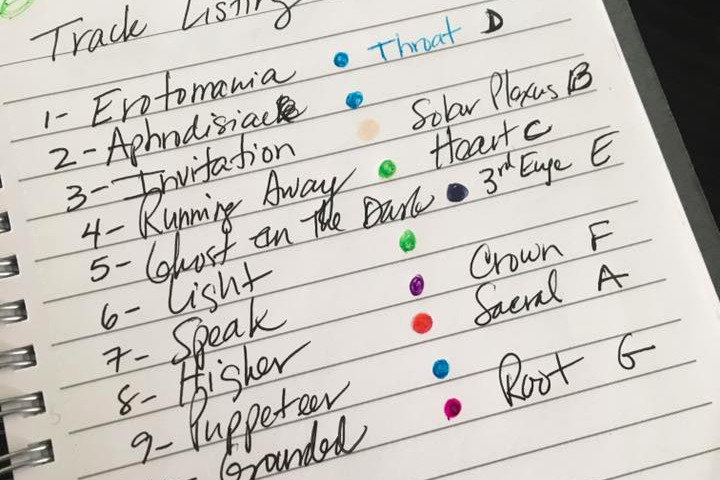 Track Listing
1- Erotomania Throat D
2- Aphrodisiac
3- Invitation Solar Plexus B
4- Running Away Heart C
5- Ghost in the Dark 3rd Eye E
6- Light
7- Speak Crown F
8- Higher Sacral A
9- Puppeteer
Grounded Root G